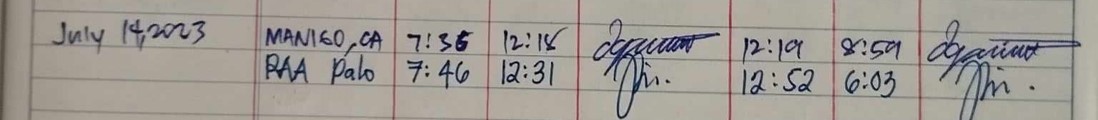 July 14, 2023 MANIGO, CA 7:35 12:18 12:19 8:59
RAA Palo 7:46 12:31 12:52 6:03